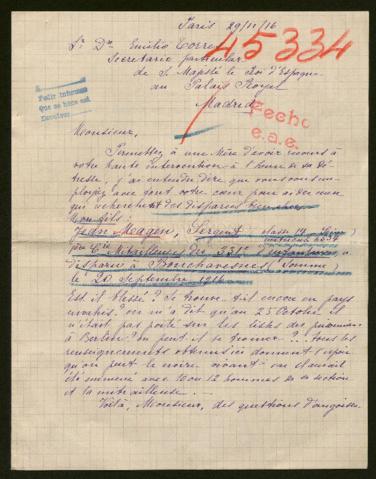 Paris 29/11/16
45334
Sr Dn Emilio Torres
Secrétaire particulier
de S. Majesté le Roi d'Espagne
au Palais Royal
Madrid
Pedir informes
Que se hace esa
Fecho
e.a.e.
Monsieur,
Permettez à une Mère d'avoir recours à
votre haute intervention à l'heure de sa dé-
tresse, j'ai entendu dire que vous vous em-
ployez avec tout votre cœur pour aider ceux
qui recherchent des disparus
Mon fils:
Jean Sergent classe 14
Cie Mitrailleuses du 331e d'Infanterie a
disparu à Bouchavesnes (Somme)
le 20 septembre 1916
Est il blessé? Se trouve-t-il encore en pays
envahis? on m'a dit qu'au 25 Octobre il
n'était pas porté sur les listes des prisonniers
à Berlin? Où peut il se trouver? Tous les
renseignements obtenus ici donnent l'espoir
qu'on peut le croire vivant car il aurait
été emmené avec 10 ou 12 hommes de sa section
et la mitrailleuse.
Voilà, Monsieur, des questions d'angoisse